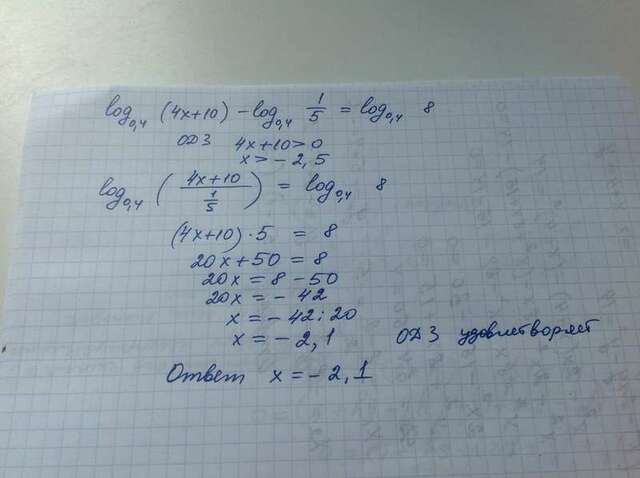 log₀,₄ (4x+10) - log₀,₄ 1/5 = log₀,₄ 8
ОДЗ 4x+10>0
x>-2,5
log₀,₄ ((4x+10)/(1/5)) = log₀,₄ 8
(4x+10)·5 = 8
20x+50=8
20x=8-50
20x=-42
x=-42:20
x=-2,1 ОДЗ удовлетворяет
Ответ x=-2,1